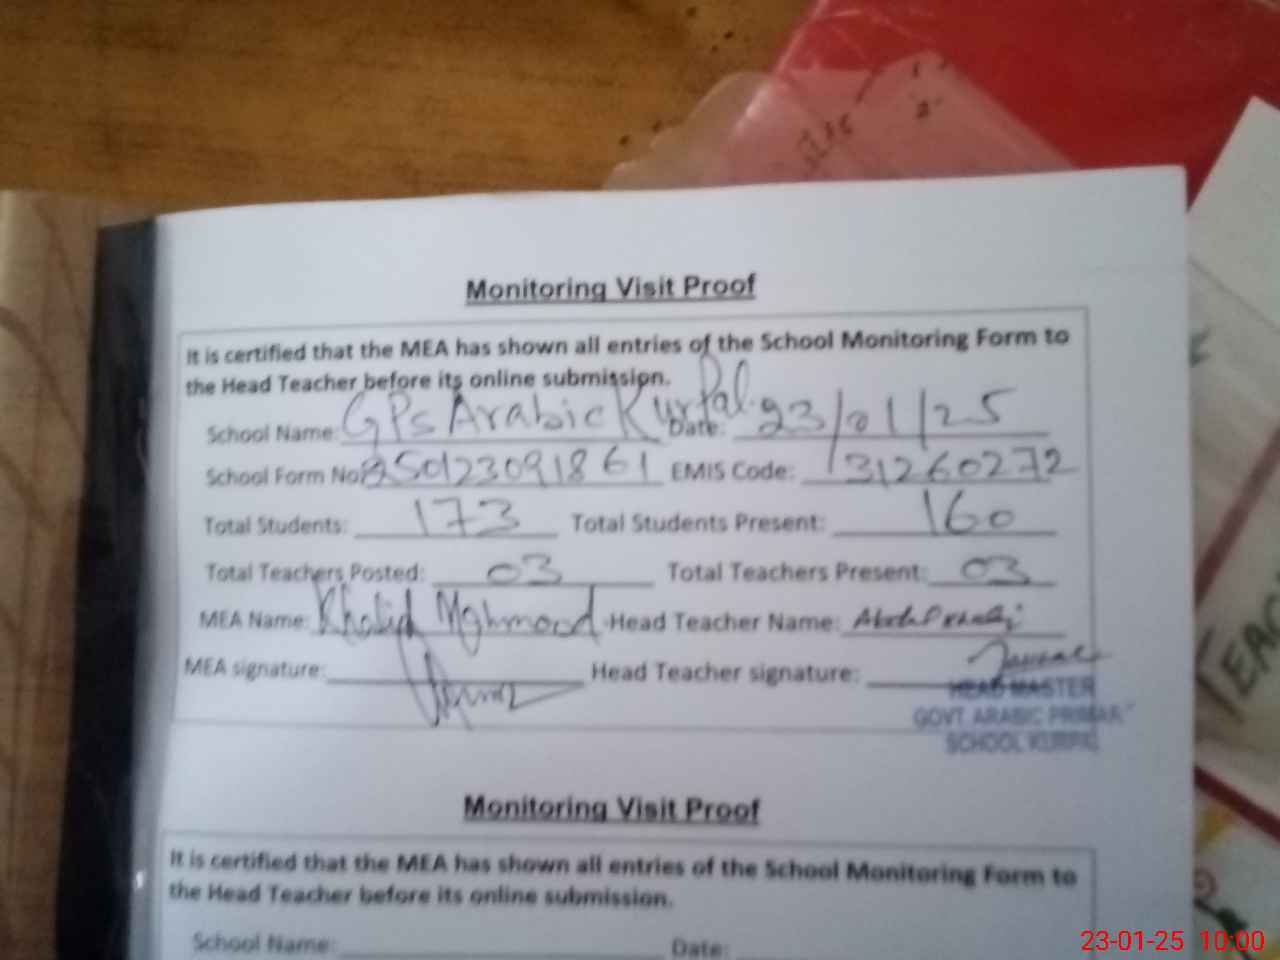 Monitoring Visit Proof
It is certified that the MEA has shown all entries of the School Monitoring Form to
the Head Teacher before its online submission.
School Name: GPS Arabic Kurpal Date: 23/01/25
School Form No: 250123091861 EMIS Code: 31260272
Total Students: 173 Total Students Present: 160
Total Teachers Posted: 03 Total Teachers Present: 03
MEA Name: Khalid Mahmood Head Teacher Name:
MEA signature: Head Teacher signature:
HEAD MASTER
GOVT. ARABIC PRIMARY
SCHOOL KURPAL
Monitoring Visit Proof
It is certified that the MEA has shown all entries of the School Monitoring Form to
the Head Teacher before its online submission.
School Name: Date:
23-01-25 10:00